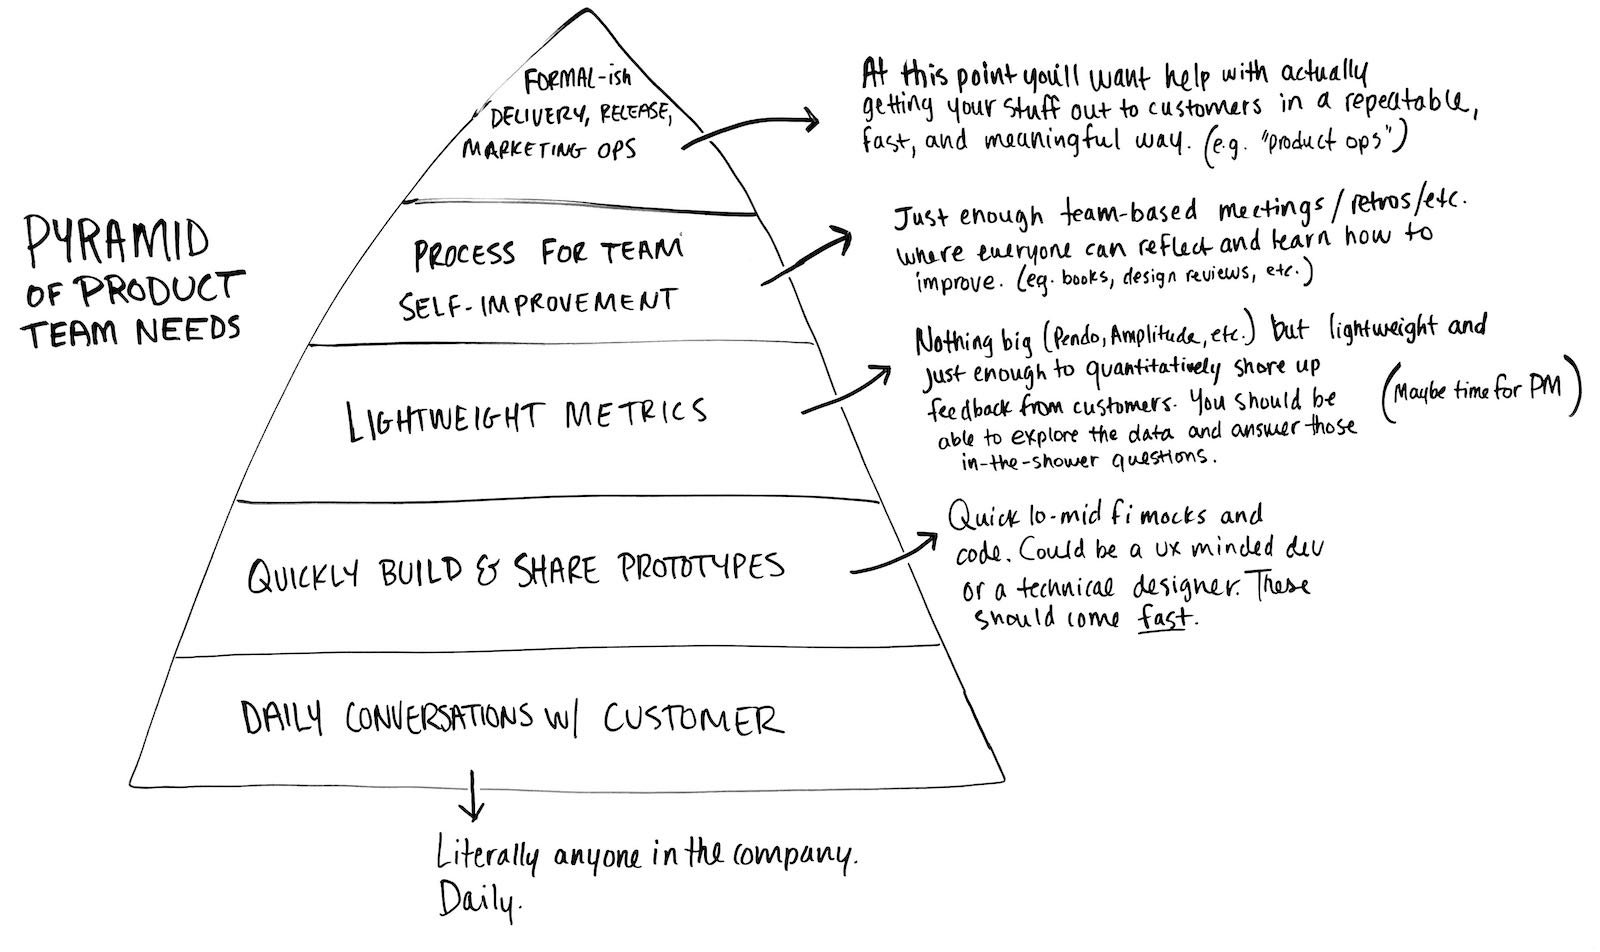 PYRAMID
OF PRODUCT
TEAM NEEDS
FORMAL-ish
DELIVERY, RELEASE,
MARKETING OPS
At this point you'll want help with actually
getting your stuff out to customers in a repeatable,
fast, and meaningful way. (e.g. "product ops")
PROCESS FOR TEAM
SELF-IMPROVEMENT
Just enough team-based meetings/retros/etc.
where everyone can reflect and learn how to
improve. (eg. books, design reviews, etc.)
LIGHTWEIGHT METRICS
Nothing big (Pendo, Amplitude, etc.) but lightweight and
just enough to quantitatively shore up
feedback from customers. You should be
able to explore the data and answer those
in-the-shower questions.
(Maybe time for PM)
QUICKLY BUILD & SHARE PROTOTYPES
Quick lo-mid fi mocks and
code. Could be a UX minded dev
or a technical designer. These
should come fast.
DAILY CONVERSATIONS W/ CUSTOMER
Literally anyone in the company.
Daily.